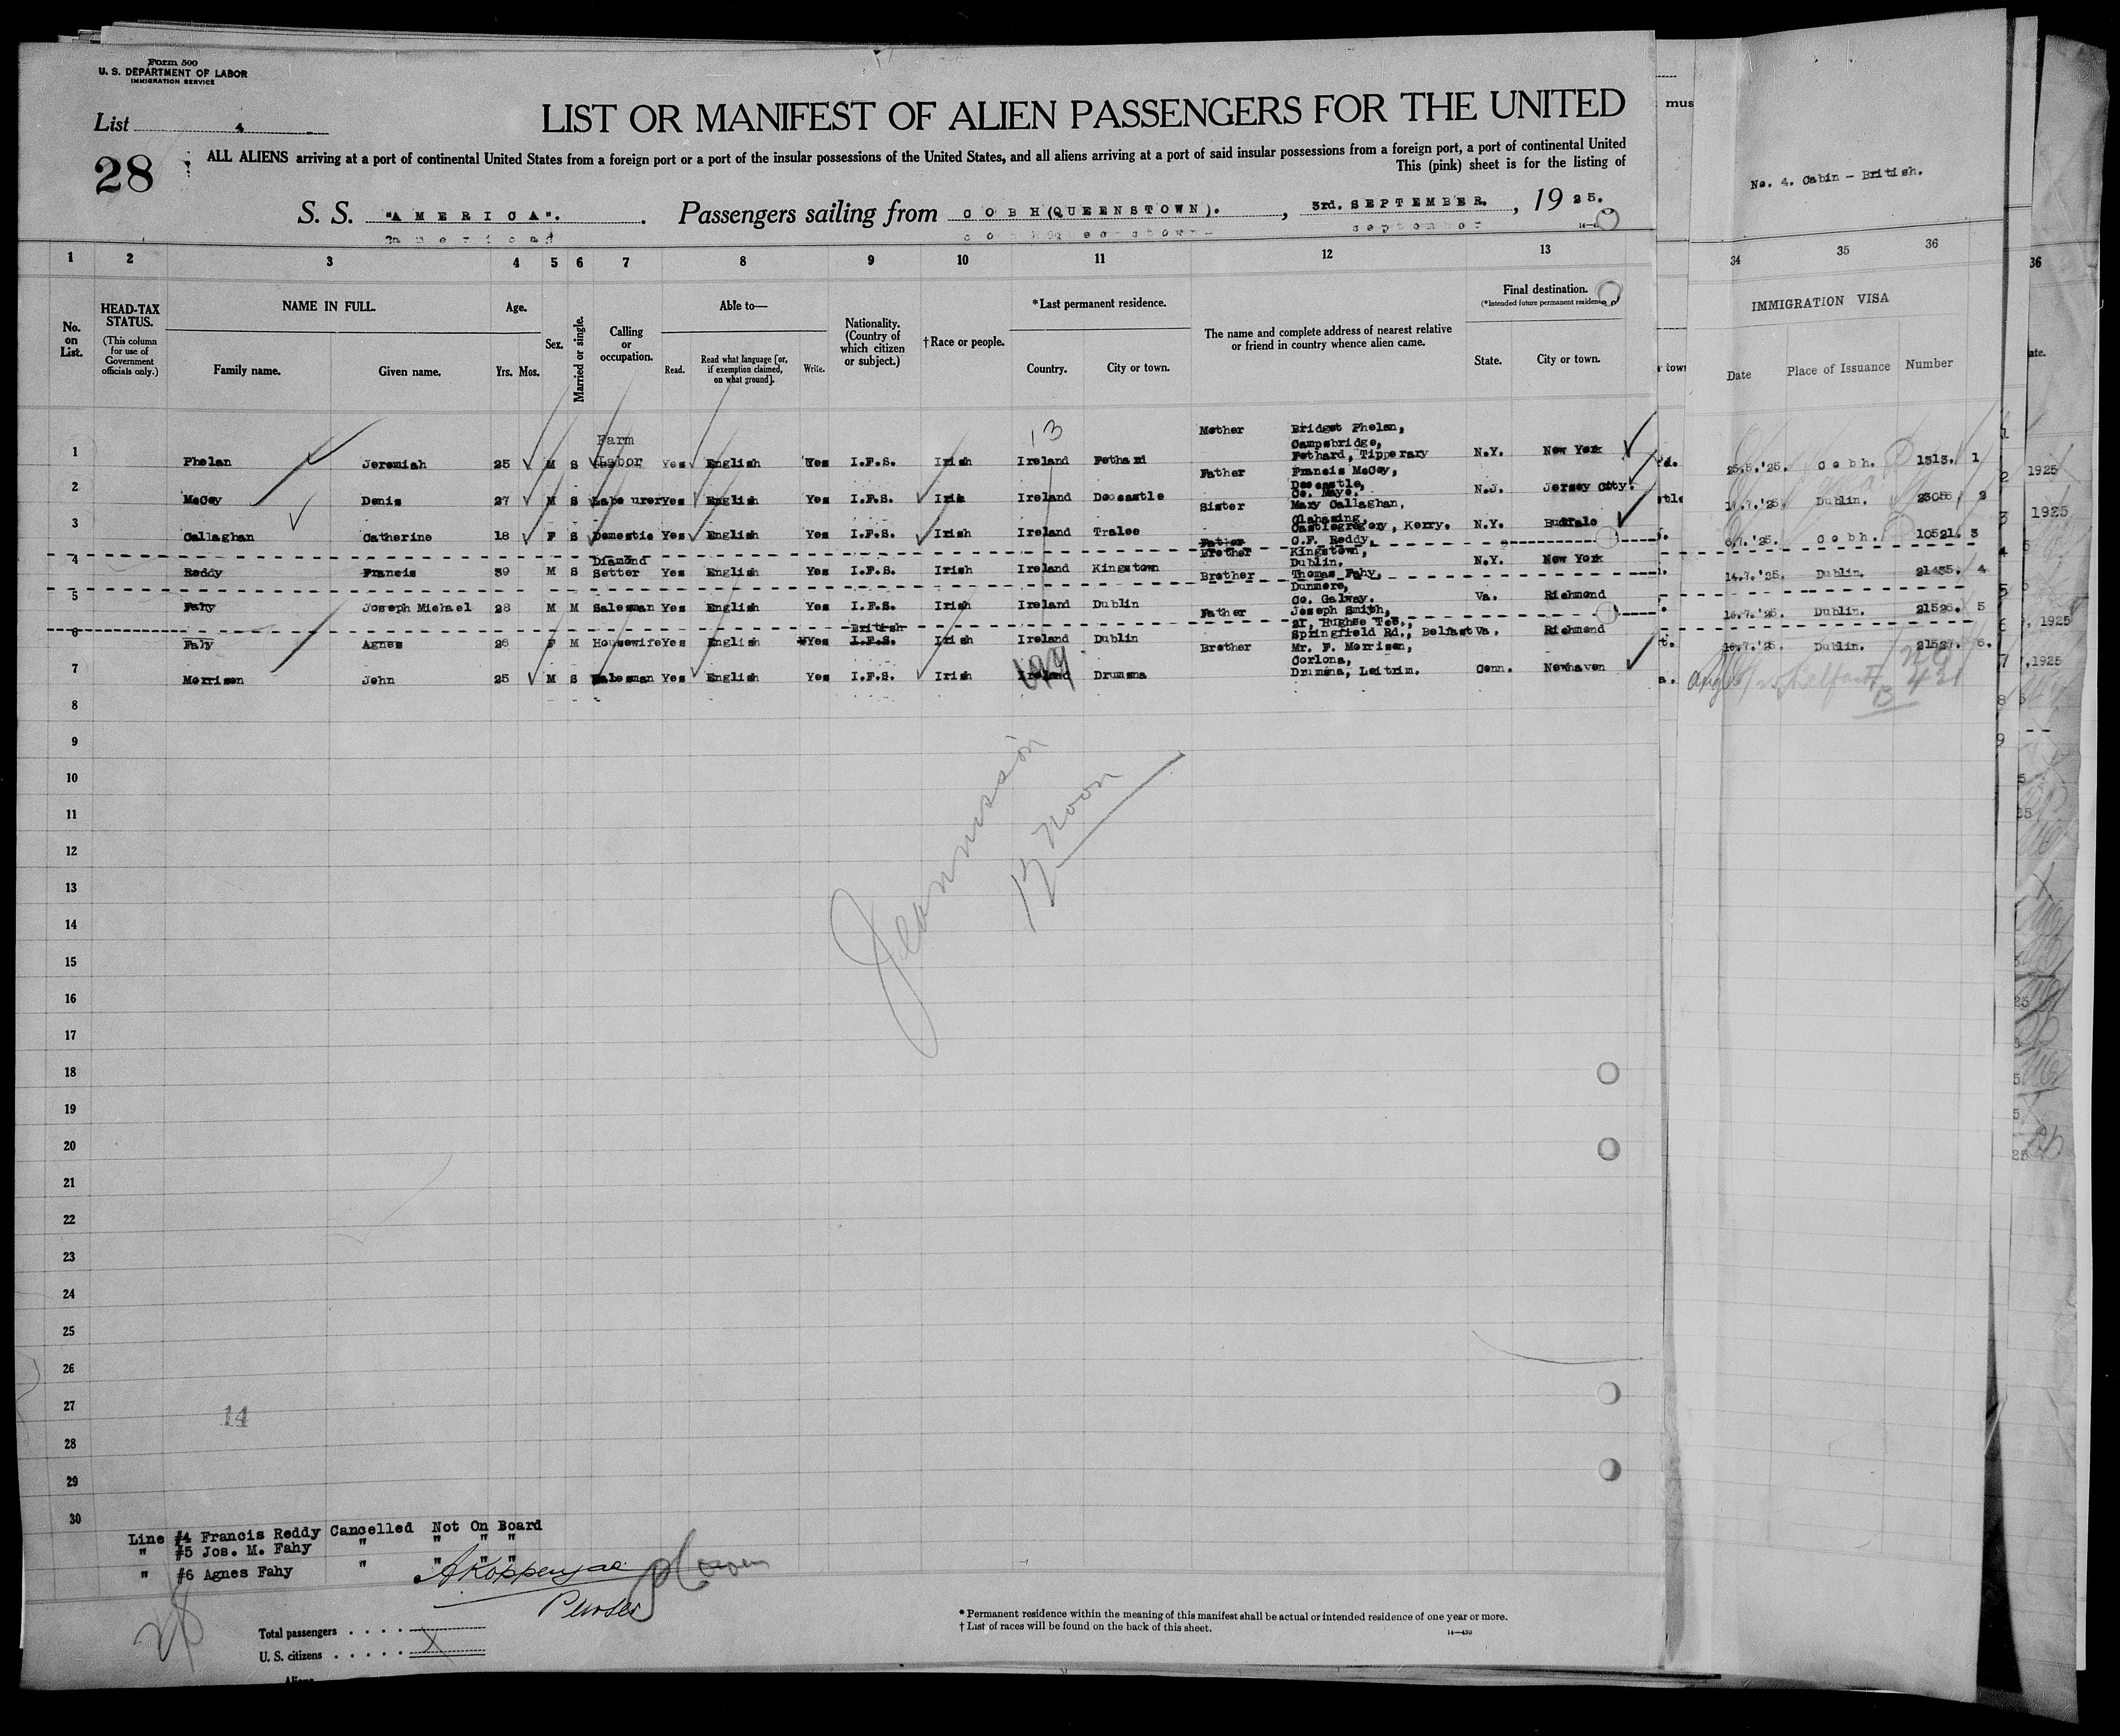 Form 500
U. S. DEPARTMENT OF LABOR
IMMIGRATION SERVICE
List 4
LIST OR MANIFEST OF ALIEN PASSENGERS FOR THE UNITED
28
ALL ALIENS arriving at a port of continental United States from a foreign port or a port of the insular possessions of the United States, and all aliens arriving at a port of said insular possessions from a foreign port, a port of continental United
This (pink) sheet is for the listing of
S. S. "AMERICA". Passengers sailing from COBH (QUEENSTOWN). , 3rd. SEPTEMBER. , 19 25.
mus
No. 4. Cabin - British.
1 2 3 4 5 6 7 8 9 10 11 12 13 34 35 36
No. on List.
HEAD-TAX STATUS.
(This column for use of Government officials only.)
NAME IN FULL.
Family name. Given name.
Age.
Yrs. Mos.
Sex.
Married or single.
Calling or occupation.
Able to—
Read. Read what language [or, if exemption claimed, on what ground]. Write.
Nationality. (Country of which citizen or subject.)
†Race or people.
*Last permanent residence.
Country. City or town.
The name and complete address of nearest relative or friend in country whence alien came.
Final destination.
(*Intended future permanent residence.)
State. City or town.
IMMIGRATION VISA
Date Place of Issuance Number
13
1 Phelan Jeremiah 25 M S Farm Labor Yes English Yes I.F.S. Irish Ireland Fethard Mother Bridget Phelan, Campsbridge, Fethard, Tipperary N.Y. New York 25.5.'25. Cobh. 1313. 1
2 McCoy Denis 27 M S Labourer Yes English Yes I.F.S. Irish Ireland Doocastle Father Francis McCoy, Doocastle, Co. Mayo. N.J. Jersey City. Dublin. 2
3 Callaghan Catherine 18 F S Domestic Yes English Yes I.F.S. Irish Ireland Tralee Sister Mary Callaghan, Castlegregory, Kerry. N.Y. Buffalo Cobh. 10521. 3
4 Reddy Francis 39 M S Diamond Setter Yes English Yes I.F.S. Irish Ireland Kingstown Father Brother C.F. Reddy, Kingstown, Dublin. N.Y. New York 14.7.'25. Dublin. 21435. 4
5 Fahy Joseph Michael 28 M M Salesman Yes English Yes I.F.S. Irish Ireland Dublin Brother Thomas Fahy, Dunmore, Co. Galway. Va. Richmond Dublin. 21526. 5
6 Fahy Agnes 26 F M Housewife Yes English Yes British I.F.S. Irish Ireland Dublin Father Joseph Smith, 21, Hughse Tce., Springfield Rd., Belfast Va. Richmond Dublin. 21527. 6.
7 Morrison John 25 M S Salesman Yes English Yes I.F.S. Irish Ireland Drumsna Brother Mr. F. Morrison, Corlona, Drumsna, Leitrim. Conn. Newhaven
8
9
10
11
12
13
14
15
16
17
18
19
20
21
22
23
24
25
26
27
28
29
30
12 noon
14
Line #4 Francis Reddy Cancelled Not On Board
" #5 Jos. M. Fahy " " " "
" #6 Agnes Fahy " " " "
Purser
28
Total passengers . . . .
U. S. citizens . . . . . X
Aliens
* Permanent residence within the meaning of this manifest shall be actual or intended residence of one year or more.
† List of races will be found on the back of this sheet.
14—430